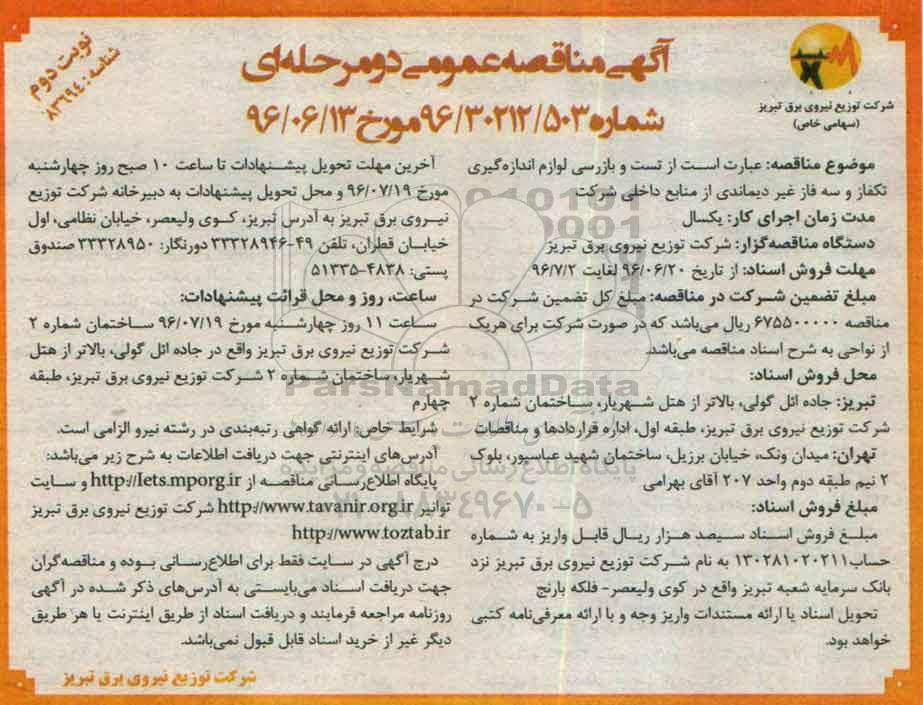 نوبت دوم
شناسه: ۸۳۶۹۴۰
آگهی مناقصه عمومی دو مرحله‌ای
شماره ۹۶/۳۰۲۱۲/۵۰۳ مورخ ۹۶/۰۶/۱۳
شرکت توزیع نیروی برق تبریز
(سهامی خاص)
موضوع مناقصه: عبارت است از تست و بازرسی لوازم اندازه‌گیری
تکفاز و سه فاز غیر دیماندی از منابع داخلی شرکت
مدت زمان اجرای کار: یکسال
دستگاه مناقصه‌گزار: شرکت توزیع نیروی برق تبریز
مهلت فروش اسناد: از تاریخ ۹۶/۰۶/۲۰ لغایت ۹۶/۷/۲
مبلغ تضمین شرکت در مناقصه: مبلغ کل تضمین شرکت در
مناقصه ۶۷۵۵۰۰۰۰۰ ریال می‌باشد که در صورت شرکت برای هریک
از نواحی به شرح اسناد مناقصه می‌باشد.
محل فروش اسناد:
تبریز: جاده ائل گولی، بالاتر از هتل شهریار، ساختمان شماره ۲
شرکت توزیع نیروی برق تبریز، طبقه اول، اداره قراردادها و مناقصات
تهران: میدان ونک، خیابان برزیل، ساختمان شهید عباسپور، بلوک
۲ نیم طبقه دوم واحد ۲۰۷ آقای بهرامی
مبلغ فروش اسناد:
مبلغ فروش اسناد سیصد هزار ریال قابل واریز به شماره
حساب ۱۳۰۲۸۱۰۲۰۲۱۱ به نام شرکت توزیع نیروی برق تبریز نزد
بانک سرمایه شعبه تبریز واقع در کوی ولیعصر- فلکه بارنج
تحویل اسناد یا ارائه مستندات واریز وجه و با ارائه معرفی‌نامه کتبی
خواهد بود.
آخرین مهلت تحویل پیشنهادات تا ساعت ۱۰ صبح روز چهارشنبه
مورخ ۹۶/۰۷/۱۹ و محل تحویل پیشنهادات به دبیرخانه شرکت توزیع
نیروی برق تبریز به آدرس تبریز، کوی ولیعصر، خیابان نظامی، اول
خیابان قطران، تلفن ۴۹-۳۳۳۲۸۹۴۶ دورنگار: ۳۳۳۲۸۹۵۰ صندوق
پستی: ۴۸۳۸-۵۱۳۳۵
ساعت، روز و محل قرائت پیشنهادات:
ساعت ۱۱ روز چهارشنبه مورخ ۹۶/۰۷/۱۹ ساختمان شماره ۲
شرکت توزیع نیروی برق تبریز واقع در جاده ائل گولی، بالاتر از هتل
شهریار، ساختمان شماره ۲ شرکت توزیع نیروی برق تبریز، طبقه
چهارم
شرایط خاص: ارائه گواهی رتبه‌بندی در رشته نیرو الزامی است.
آدرس‌های اینترنتی جهت دریافت اطلاعات به شرح زیر می‌باشد:
پایگاه اطلاع‌رسانی مناقصه از http://Iets.mporg.ir و سایت
توانیر http://www.tavanir.org.ir شرکت توزیع نیروی برق تبریز
http://www.toztab.ir
درج آگهی در سایت فقط برای اطلاع‌رسانی بوده و مناقصه‌گران
جهت دریافت اسناد می‌بایستی به آدرس‌های ذکر شده در آگهی
روزنامه مراجعه فرمایند و دریافت اسناد از طریق اینترنت یا هر طریق
دیگر غیر از خرید اسناد قابل قبول نمی‌باشد.
شرکت توزیع نیروی برق تبریز
ParsNamadData
پایگاه اطلاع رسانی مناقصه و مزایده
۰۲۱-۸۸۳۴۹۶۷۰-۵